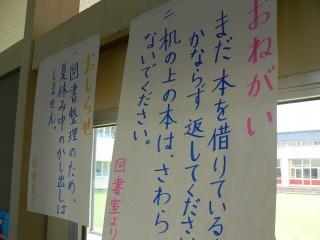 おねがい
まだ本を借りている
かならず返してくださ
二 机の上の本は、さわら
ないでください。
図書室より
おしらせ
一 図書整理のため、
夏休み中のかし出しは
しません。